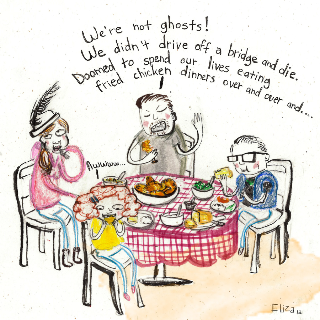 We're not ghosts!
We didn't drive off a bridge and die.
Doomed to spend our lives eating
fried chicken dinners over and over and....
Awwww...
Eliza